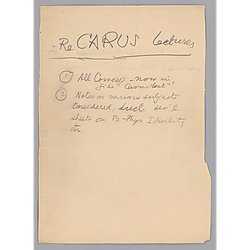 Re CARUS Lectures
① All Corresp - now in
file "Carus Lect"
② Notes on various subjects
considered, incl. sev'l
sheets on Ps-Phys Identity,
etc.